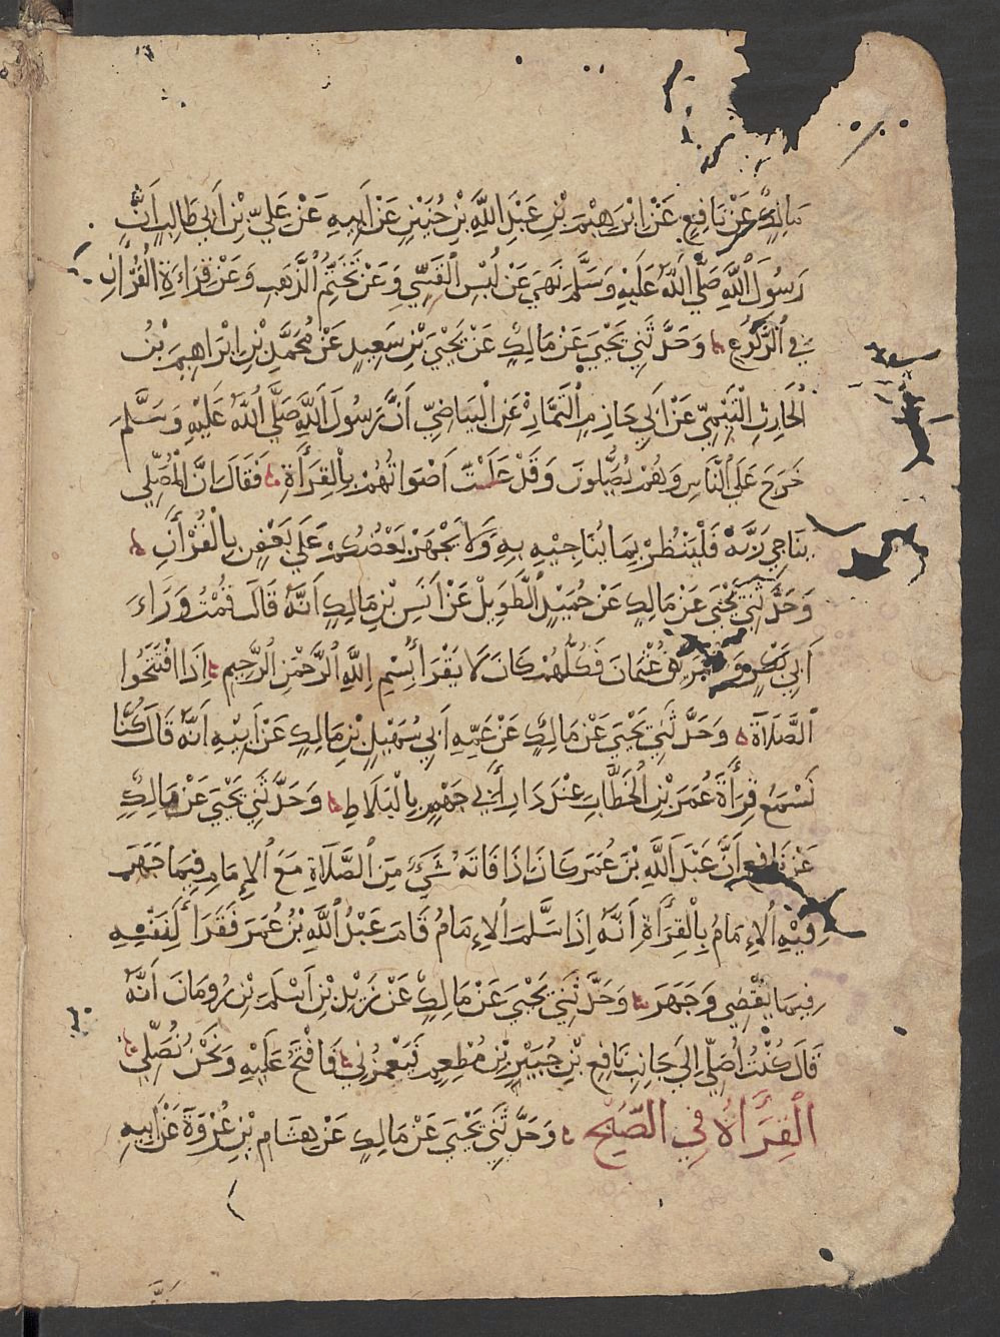 مَالِكٍ عَنْ نَافِعٍ عَنْ ابْرَهِيْمَ بْنِ عَبْدِ اللَّهِ بْنِ حُنَيْنٍ عَنْ اَبِيهِ عَنْ عَلِيِّ بْنِ اَبِي طَالِبٍ اَنَّ
رَسُولَ اللَّهِ صَلَّي اللَّهُ عَلَيْهِ وَسَلَّمَ نَهَي عَنْ لُبْسِ الْقَسِّيِّ وَعَنْ تَخَتُّمِ الذَّهَبِ وَعَنْ قِرَاءَةِ الْقُرْاٰنِ
فِي الرُّكُوعِ وَحَدَّثَنِي يَحْيَي عَنْ مَالِكٍ عَنْ يَحْيَي بْنِ سَعِيدٍ عَنْ مُحَمَّدِ بْنِ ابْرَاهِيمَ بْنُ
الْحَارِثِ التَّيْمِيِّ عَنْ اَبِي حَازِمِ التَّمَّارِ عَنِ الْبَيَاضِيِّ اَنَّ رَسُولَ اللَّهِ صَلَّي اللَّهُ عَلَيْهِ وَسَلَّمَ
خَرَجَ عَلَي النَّاسِ وَهُمْ يُصَلُّونَ وَقَدْ عَلَتْ اَصْوَاتُهُمْ بِالْقِرَأَةِ فَقَالَ انَّ الْمُصَلِّي
يُنَاجِي رَبَّهُ فَلْيَنْظُرْ بِمَا يُنَاجِيْهِ بِهِ وَلَا يَجْهَرْ بَعْضُكُمْ عَلَي بَعْضٍ بِالْقُرْأٰنِ
وَحَدَّثَنِي يَحْيَي عَنْ مَالِكٍ عَنْ حُمَيْدٍ الطَّوِيلْ عَنْ اَنَسِ بْنِ مَالِكٍ اَنَّهُ قَالَ قُمْتُ وَرَاءَ
اَبِي بَكْرٍ وَعُمَرَ وَعُثْمَانَ فَكُلُّهُمْ كَانَ لَا يَقْرَأُ بِسْمِ اللَّهِ الرَّحْمٰنِ الرَّحِيمِ اِذَا افْتَتَحُوا
الصَّلَاةَ وَحَدَّثَنِي يَحْيَي عَنْ مَالِكٍ عَنْ عَمِّهِ اَبِي سُهَيْلِ بْنِ مَالِكٍ عَنْ اَبِيْهِ اَنَّهُ قَالَ كُنَّا
نَسْمَعُ قِرَأَةَ عُمَرَ بْنِ الْخَطَّابِ عِنْدَ دَارِ أَبِي جَهْمٍ بِالْبَلَاطِ وَحَدَّثَنِي يَحْيَي عَنْ مَالِكٍ
عَنْ نَافِعٍ اَنَّ عَبْدَ اللَّهِ بْنَ عُمَرَ كَانَ اِذَا فَاتَهُ شَيْءٌ مِنَ الصَّلَاةِ مَعَ الاِمَامِ فِيمَا جَهَرَ
فِيْهِ الاِمَامُ بِالْقِرَأَةِ اَنَّهُ اِذَا سَلَّمَ الاِمَامُ قَامَ عَبْدُ اللَّهِ بْنُ عُمَرَ فَقَرَأَ لِنَفْسِهِ
فِيمَا يَقْضِي وَجَهَرَ وَحَدَّثَنِي يَحْيَي عَنْ مَالِكٍ عَنْ يَزِيْدَ بْنِ رُومَانَ اَنَّهُ
قَالَ كُنْتُ اُصَلِّي اِلَي جَانِبِ نَافِعِ بْنِ جُبَيْرِ بْنِ مُطْعِمٍ فَيَغْمِزُنِي فَافْتَحُ عَلَيْهِ وَنَحْنُ نُصَلِّي
الْقِرَأَةُ فِي الصُّبْحِ وَحَدَّثَنِي يَحْيَي عَنْ مَالِكٍ عَنْ هِشَامِ بْنِ عُرْوَةَ عَنْ اَبِيهِ